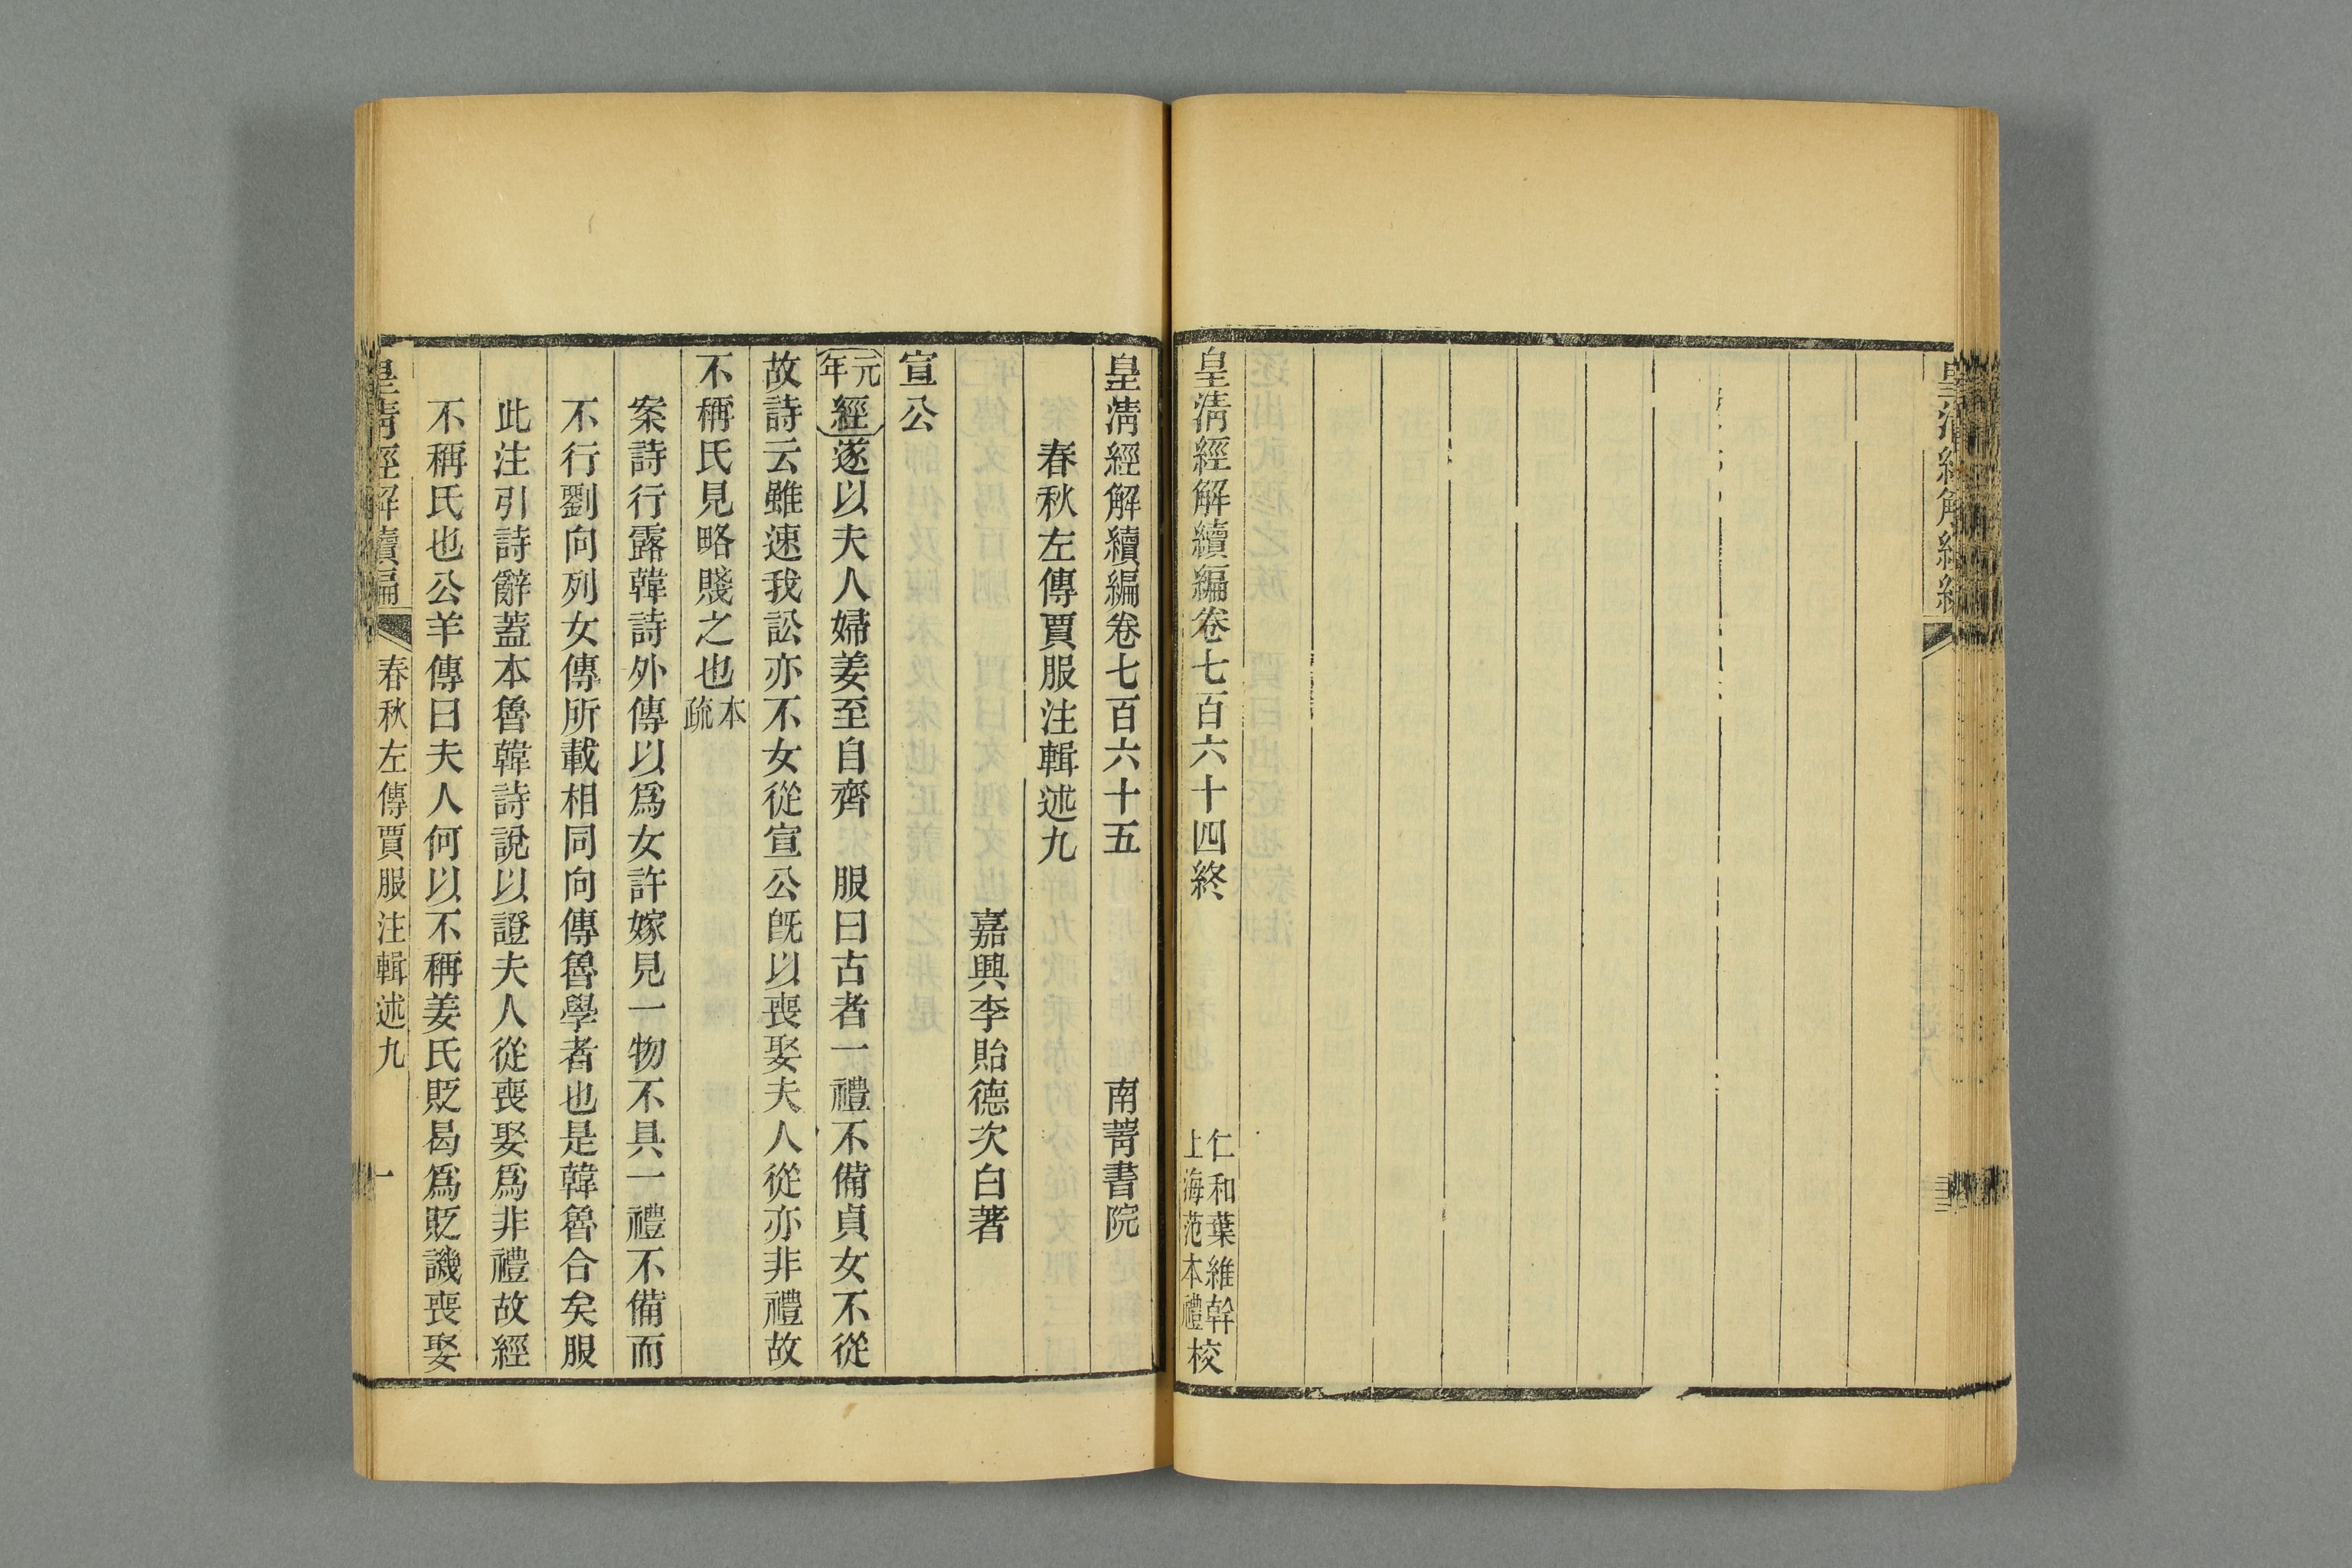 皇清經解續編卷七百六十四終
仁和葉維幹
上海范本禮校
皇清經解續編卷七百六十五　南菁書院
春秋左傳賈服注輯述九
嘉興李貽德次白著
宣公
元年經遂以夫人婦姜至自齊　服曰古者一禮不備貞女不從
故詩云雖速我訟亦不女從宣公旣以喪娶夫人從亦非禮故
不稱氏見略賤之也本疏
案詩行露韓詩外傳以爲女許嫁見一物不具一禮不備而
不行劉向列女傳所載相同向傳魯學者也是韓魯合矣服
此注引詩辭蓋本魯韓詩說以證夫人從喪娶爲非禮故經
不稱氏也公羊傳曰夫人何以不稱姜氏貶曷爲貶譏喪娶
皇清經解續編　春秋左傳賈服注輯述九　一